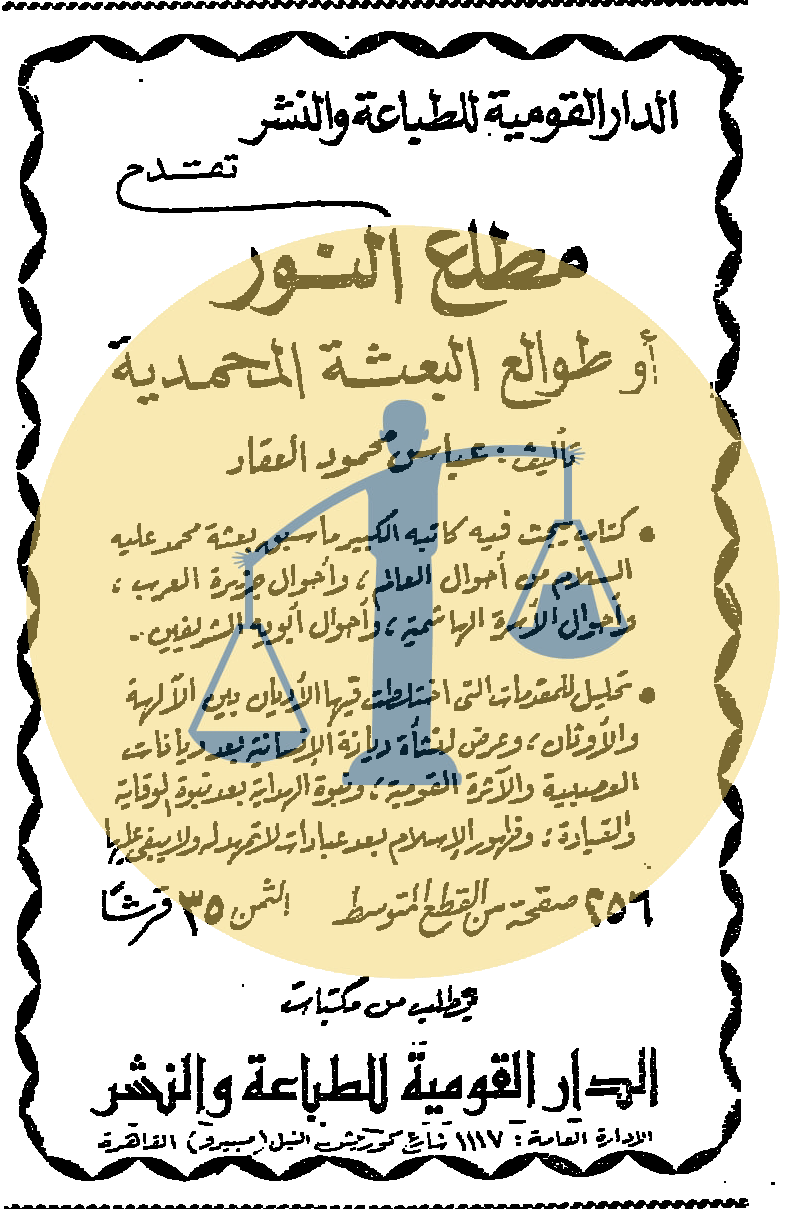 الدار القومية للطباعة والنشر
تقدم
مطلع النور
أو طوالع البعثة المحمدية
تأليف : عباس محمود العقاد
• كتاب يبحث فيه كاتبه الكبير ما سبق بعثة محمد عليه
السلام من أحوال العالم ، وأحوال جزيرة العرب ،
وأحوال الأسرة الهاشمية ، وأحوال أبويه الشريفين ..
• تحليل للمقدمات التى اختلطت فيها الأديان بين الآلهة
والأوثان ، وعرض لنشأة ديانة الإنسانية بعد ديانات
العصبية والأثرة القومية ، ونبوة الهداية بعد نبوة الوقاية
والقيادة ، وظهور الإسلام بعد عبادات لا تمهد له ولا يبقى عليها
٢٥٦ صفحة من القطع المتوسط الثمن ٣٥ قرشًا
يطلب من مكتبات
الدار القومية للطباعة والنشر
الادارة العامة : ١١١٧ شارع كورنيش النيل (مسبيرو) القاهرة